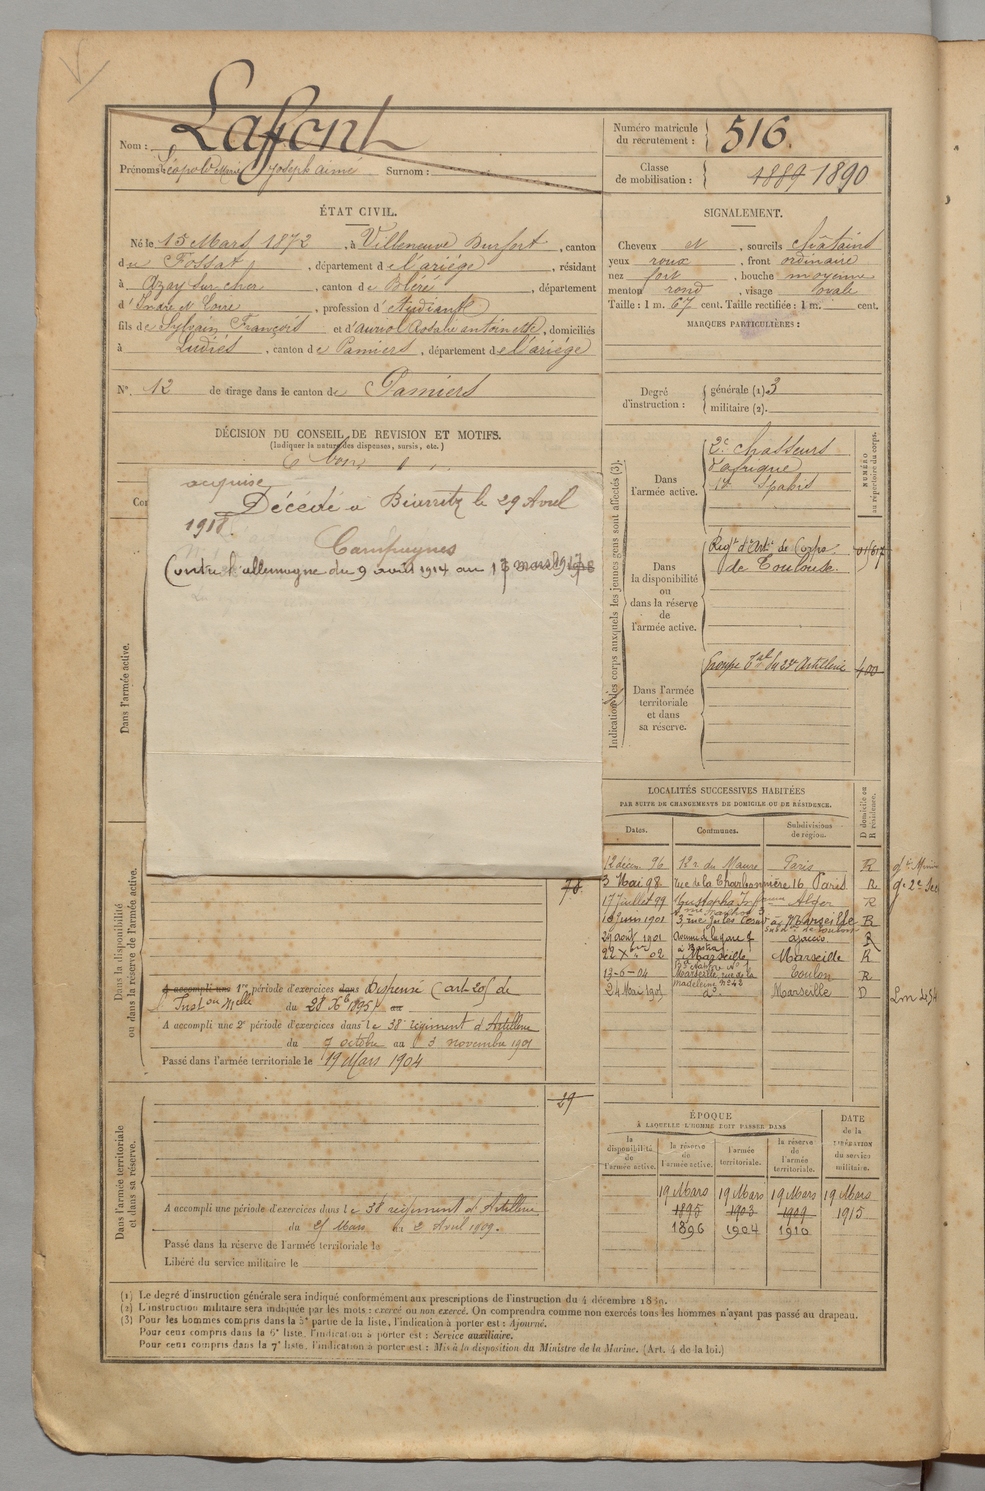 Nom : Laffont
Prénoms : Léopold Marie Joseph aimé Surnom :
Numéro matricule du recrutement : 516.
Classe de mobilisation : 1889 1890
ÉTAT CIVIL.
Né le 13 Mars 1872, à Villeneuve Durfort, canton
du Fossat, département de l'ariége, résidant
à Azay sur cher, canton de Bléré, département
d'Indre et Loire, profession d'étudiant
fils de Sylvain François et d'aurol Rosalie antoinette, domiciliés
à Ludiès, canton de Pamiers, département de l'ariége
N°. 12 de tirage dans le canton de Pamiers
SIGNALEMENT.
Cheveux et, sourcils châtains
yeux roux, front ordinaire
nez fort, bouche moyenne
menton rond, visage ovale
Taille : 1 m. 67 cent. Taille rectifiée : 1 m. cent.
MARQUES PARTICULIÈRES :
Degré d'instruction : générale (1). 3
militaire (2).
DÉCISION DU CONSEIL DE REVISION ET MOTIFS.
(Indiquer la nature des dispenses, sursis, etc.)
Bon
acquise
Décédé à Biarritz le 29 Avril
1918.
Campagnes
Contre l'allemagne du 9 août 1914 au 13 mars 1918
Dans l'armée active.
Indication des corps auxquels les jeunes gens sont affectés (3).
NUMÉRO au répertoire du corps.
Dans l'armée active.
2e chasseurs
d'afrique
1er Spahis
Dans la disponibilité ou dans la réserve de l'armée active.
Regt d'Arti de Corps
de Toulouse.
Dans l'armée territoriale et dans sa réserve.
Groupe Tal du 23e Artillerie 400
LOCALITÉS SUCCESSIVES HABITÉES
PAR SUITE DE CHANGEMENTS DE DOMICILE OU DE RÉSIDENCE.
Dates. Communes. Subdivisions de région. D domicile ou R résidence.
12 décem. 96 12 r. du Maure Paris R
3 Mai 98 rue de la Charbonnière 16 Paris R
17 juillet 99 Mustapha Alger R
10 Juin 1901 3, rue Jules Marseille R
29 août 1901 avenue de la gare ajaccio R
22 Xbre 02 Marseille Marseille R
13-6-04 Marseille, rue de la madeleine n° 243 Toulon R
24 Mai 1905 do. Marseille D
Dans la disponibilité ou dans la réserve de l'armée active.
A accompli une 1re période d'exercices dans Dispensé (art. 20) de
l'Inston Melle du 28 Xb 1895 au
A accompli une 2e période d'exercices dans le 38e régiment d'Artillerie
du 7 octobre au 3 novembre 1901
Passé dans l'armée territoriale le 19 Mars 1904
Dans l'armée territoriale et dans sa réserve.
29
A accompli une période d'exercices dans le 38 régiment d'Artillerie
du 25 Mars au 2 Avril 1909.
Passé dans la réserve de l'armée territoriale le
Libéré du service militaire le
ÉPOQUE
À LAQUELLE L'HOMME DOIT PASSER DANS
DATE de la LIBÉRATION du service militaire.
la disponibilité de l'armée active. la réserve de l'armée active. l'armée territoriale. la réserve de l'armée territoriale.
19 Mars 19 Mars 19 Mars 19 Mars
1895 1903 1919 1915
1896 1904 1910
(1) Le degré d'instruction générale sera indiqué conformément aux prescriptions de l'instruction du 4 décembre 1889.
(2) L'instruction militaire sera indiquée par les mots : exercé ou non exercé. On comprendra comme non exercés tous les hommes n'ayant pas passé au drapeau.
(3) Pour les hommes compris dans la 5e partie de la liste, l'indication à porter est : Ajourné.
Pour ceux compris dans la 6e liste, l'indication à porter est : Service auxiliaire.
Pour ceux compris dans la 7e liste, l'indication à porter est : Mis à la disposition du Ministre de la Marine. (Art. 4 de la loi.)